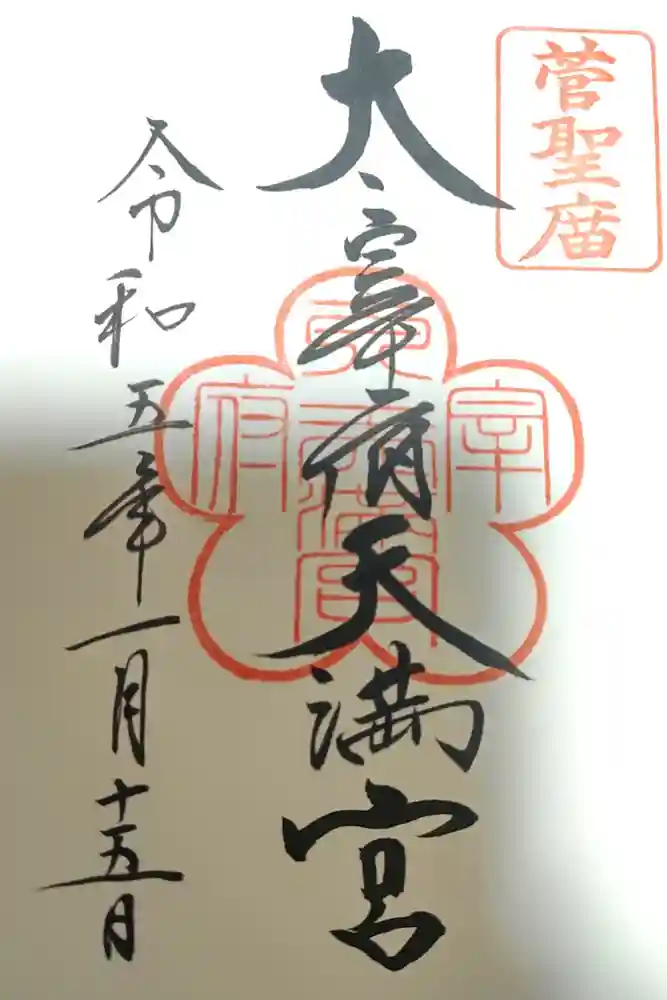 菅聖庿
太宰府天満宮
令和五年一月十五日